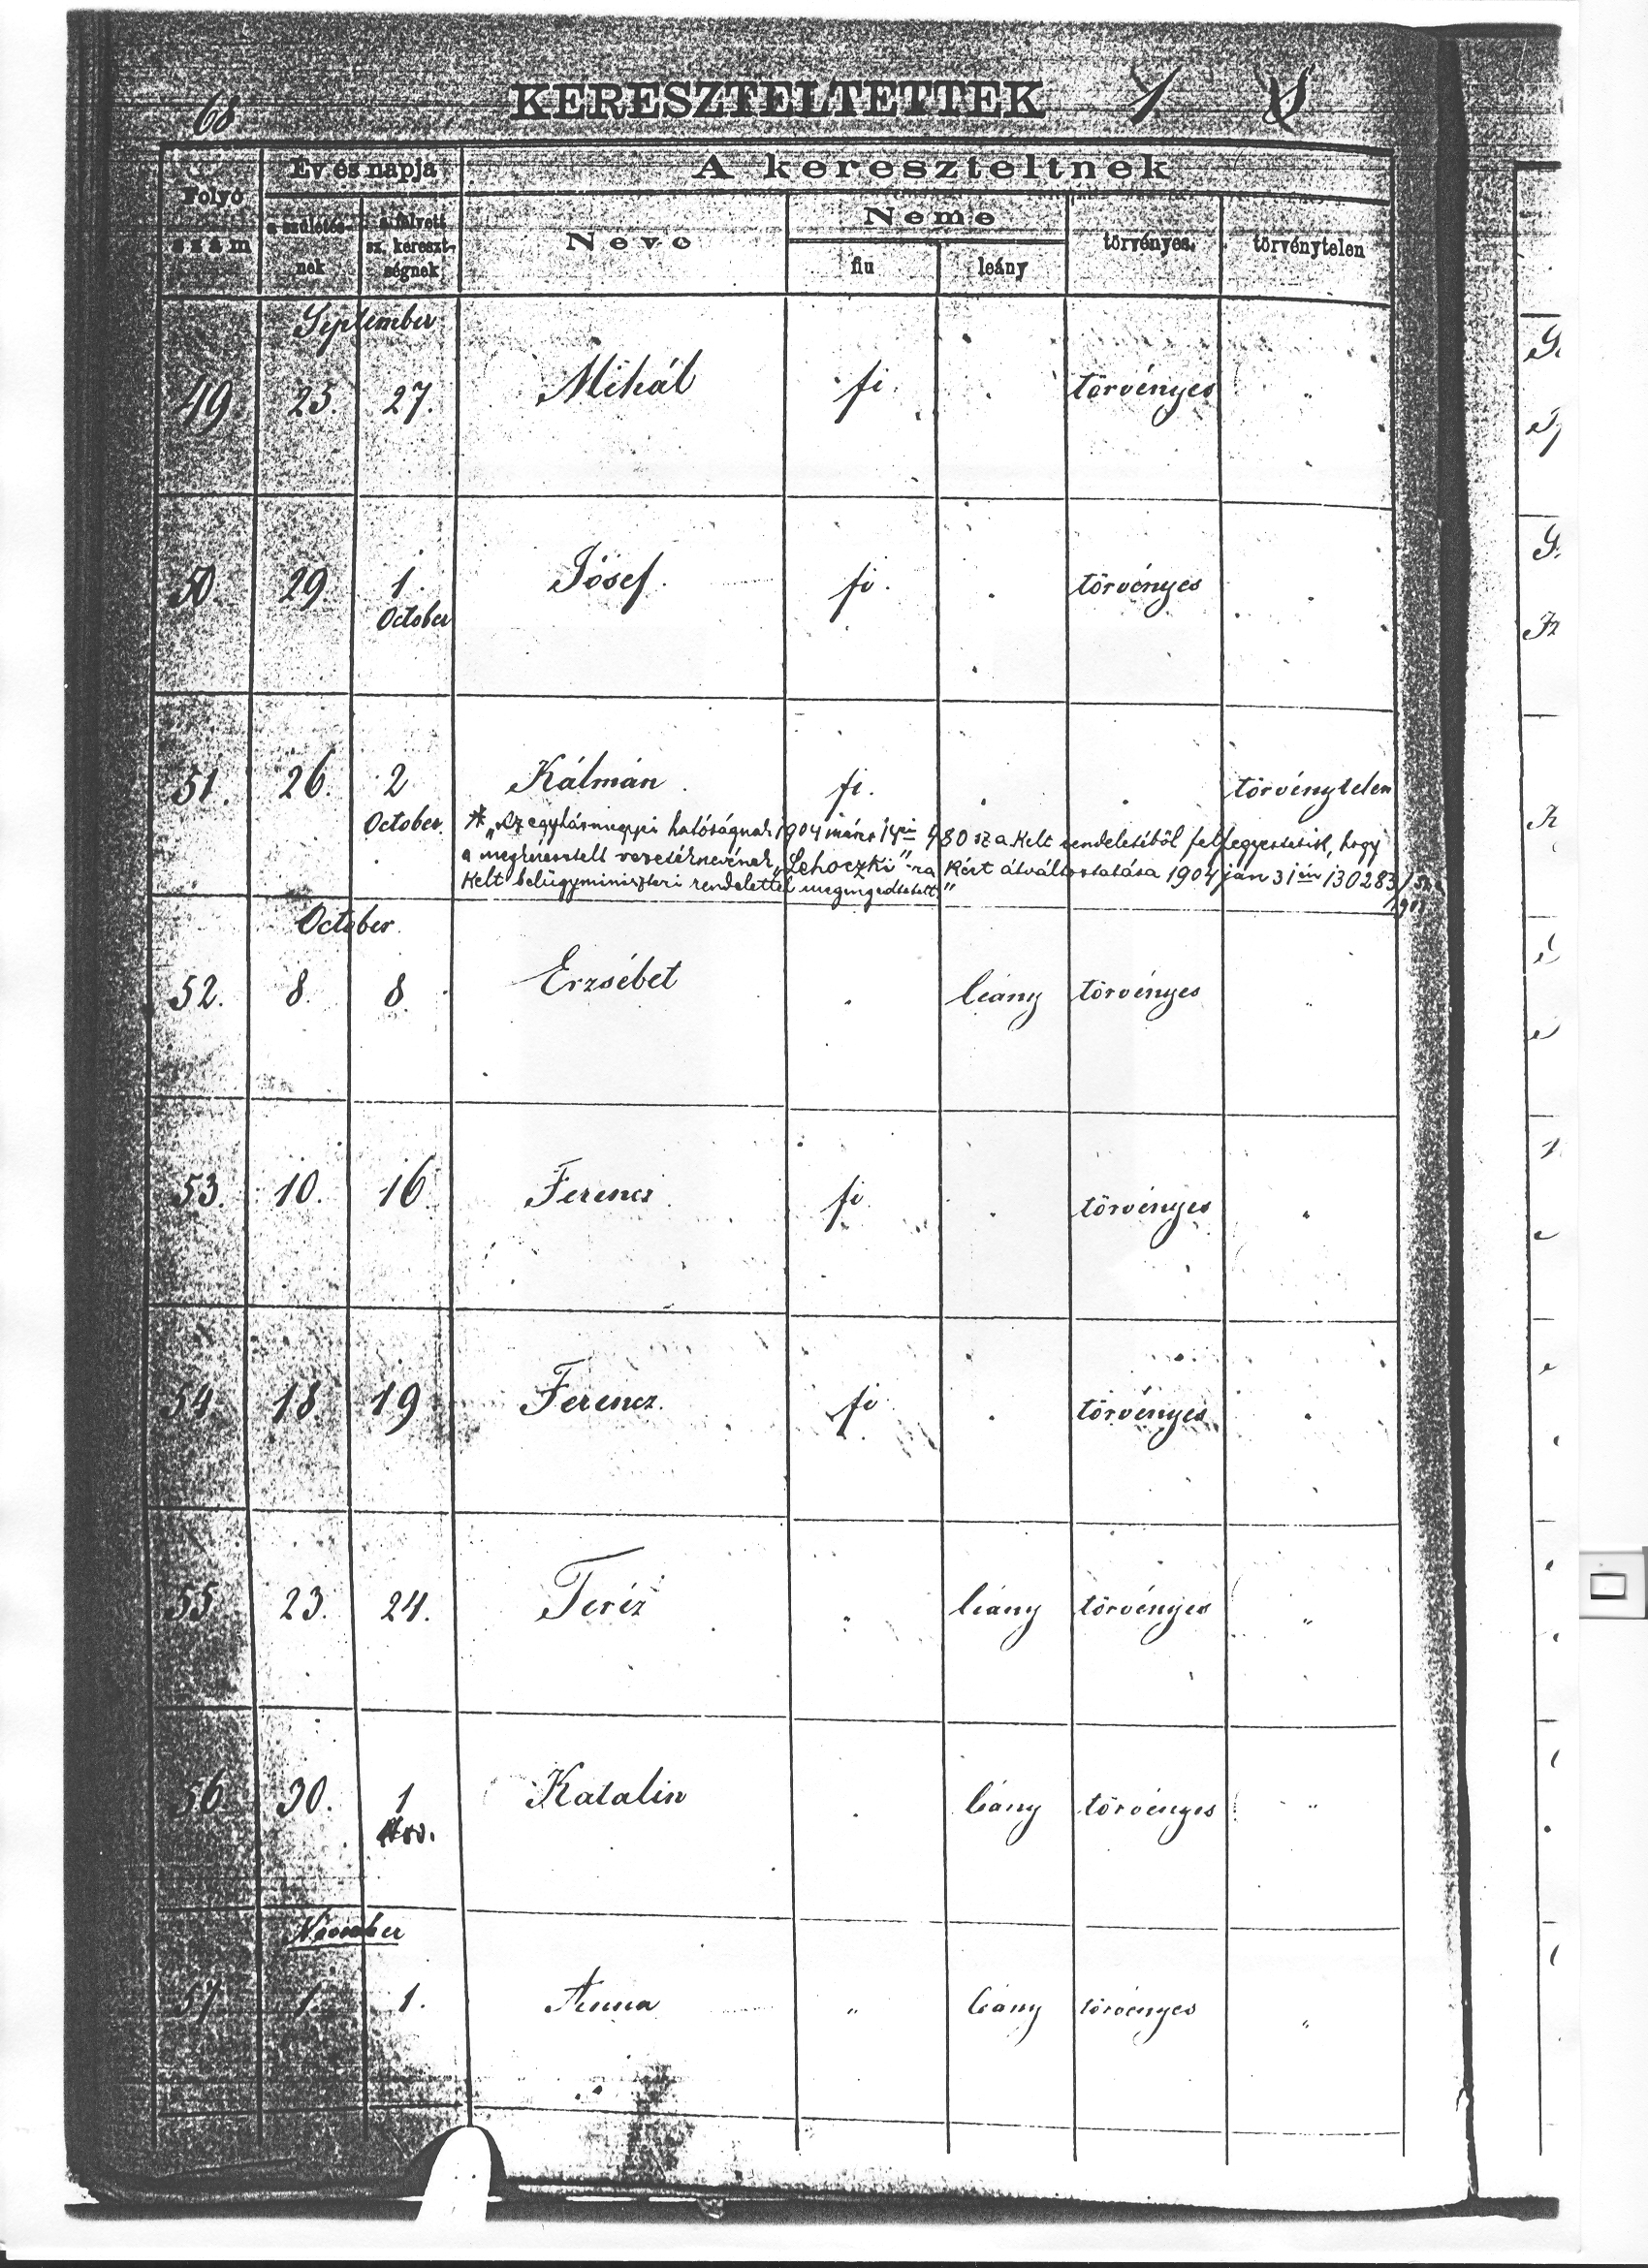 68.
KERESZTELTETTEK
Folyó szám
Év és napja
a születés-nek
a fölvett sz. kereszt-ségnek
A kereszteltnek
Neve
Neme
fiu
leány
törvényes
törvénytelen
September
49 25. 27. Mihál fi. törvényes "
50. 29. 1. Jósef. fi. törvényes
October
51. 26. 2 Kálmán fi. törvénytelen
October.
* „Az egyházmegyei hatóságnak 1904 márcz 14én 480 sz a. kelt rendeletéből feljegyeztetik, hogy
a megkeresztelt vezetéknevének „Lehoczki"-ra kért átváltoztatása 1904 jan 31én 130283/
kelt belügyminiszteri rendelettel megengedtetett."
October.
52. 8. 8 Erzsébet leány törvényes "
53. 10. 16 Ferencz fi törvényes "
54 18 19 Ferencz. fi törvényes
55 23. 24. Teréz " leány törvényes "
56 30. 1 Katalin leány törvényes "
Nov.
November
57 1. 1. Anna " leány törvényes "